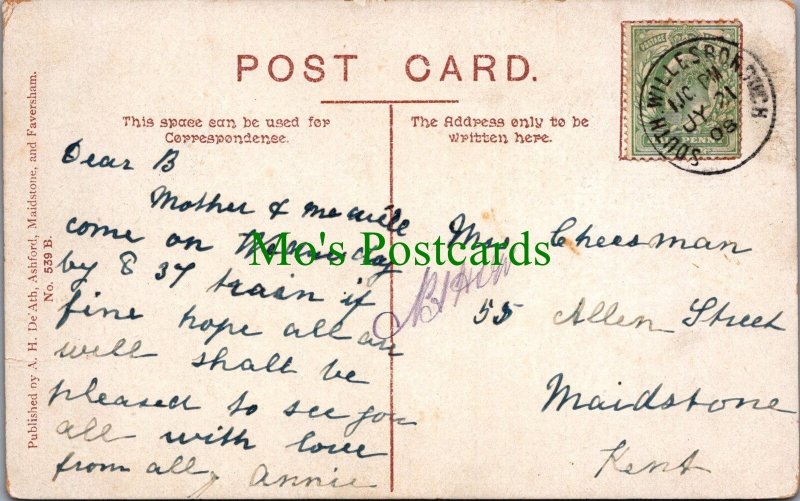 POST CARD.
This space can be used for
Correspondence.
The Address only to be
written here.
SOUTH WILLESBOROUGH
PM
JY 21
08
PENNY
Published by A. H. De'Ath, Ashford, Maidstone, and Faversham.
No. 539 B.
Dear B
Mother & me will
come on
by 8 37 train if
fine hope all are
well shall be
pleased to see you
all with love
from all, Annie
Mo's Postcards
Cheesman
55 Allen Street
Maidstone
Kent